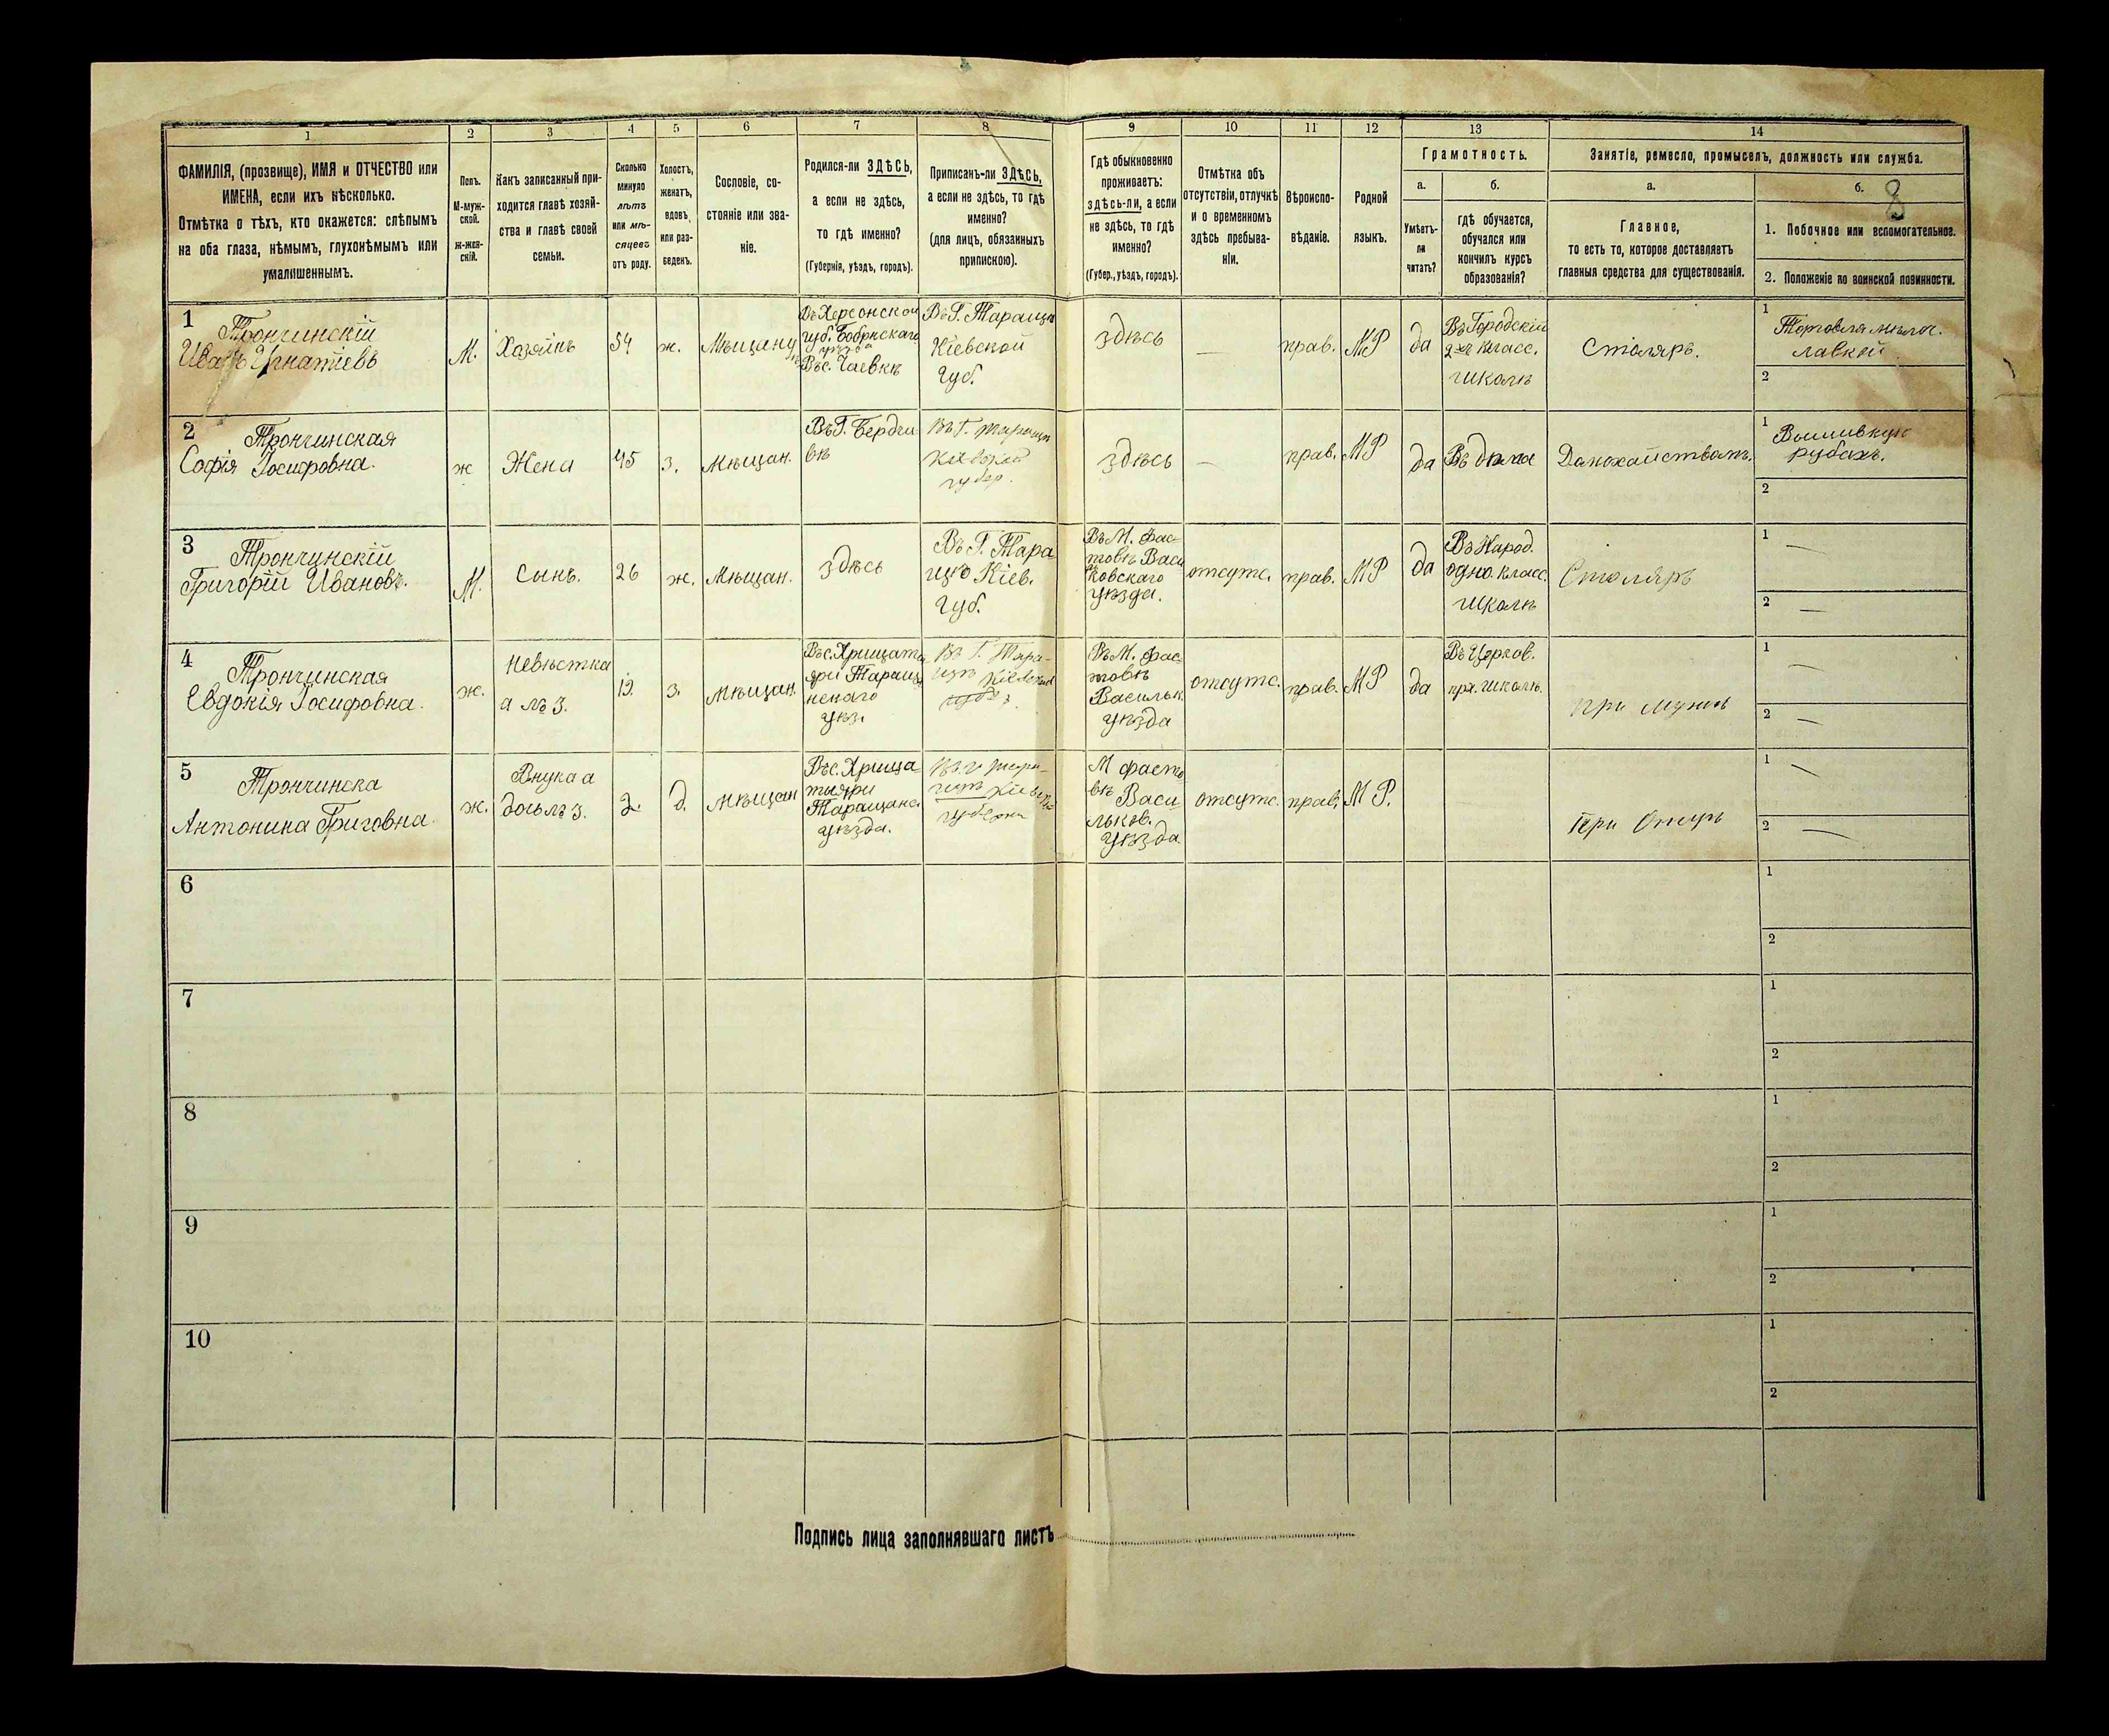 1 2 3 4 5 6 7 8 9 10 11 12 13 14
ФАМИЛІЯ, (прозвище), ИМЯ и ОТЧЕСТВО или
ИМЕНА, если ихъ нѣсколько.
Отмѣтка о тѣхъ, кто окажется: слѣпымъ
на оба глаза, нѣмымъ, глухонѣмымъ или
умалишеннымъ.
Полъ.
М-муж-
ской.
ж-жен-
скій.
Какъ записанный при-
ходится главѣ хозяй-
ства и главѣ своей
семьи.
Сколько
минуло
лѣтъ
или мѣ-
сяцевъ
отъ роду.
Холостъ,
женатъ,
вдовъ
или раз-
веденъ.
Сословіе, со-
стояніе или зва-
ніе.
Родился-ли ЗДѢСЬ,
а если не здѣсь,
то гдѣ именно?
(Губернія, уѣздъ, городъ).
Приписанъ-ли ЗДѢСЬ,
а если не здѣсь, то гдѣ
именно?
(для лицъ, обязанныхъ
припискою).
Гдѣ обыкновенно
проживаетъ:
здѣсь-ли, а если
не здѣсь, то гдѣ
именно?
(Губер., уѣздъ, городъ).
Отмѣтка объ
отсутствіи, отлучкѣ
и о временномъ
здѣсь пребыва-
ніи.
Вѣроиспо-
вѣданіе.
Родной
языкъ.
Грамотность.
а.
Умѣетъ-
ли
читать?
б.
гдѣ обучается,
обучался или
кончилъ курсъ
образованія?
Занятіе, ремесло, промыселъ, должность или служба.
а.
Главное,
то есть то, которое доставляетъ
главныя средства для существованія.
б.
8
1. Побочное или вспомогательное.
2. Положеніе по воинской повинности.
1
Трончинскій
Иванъ Игнатіевъ
М.
Хозяинъ
54
ж.
Мѣщану
Въ Херсонской
губ. Бобринскаго
уѣзда
Въ с. Гаевкѣ
Въ Г. Таращѣ
Кіевской
Губ.
здѣсь
—
прав.
МР
да
Въ Городскій
2хъ класс.
школѣ
Столяръ.
1
Торговля мѣлоч.
лавкой
2
2
Трончинская
Софія Іосифовна.
ж
Жена
45
з.
Мѣщан.
Въ Г. Бердич
вѣ
Въ Г. Таращѣ
Кіевской
губер.
здѣсь
—
прав.
МР
да
Въ дома
Домохайствомъ.
1
Вышивкую
рубахъ.
2
3
Трончинскій
Григорій Ивановъ.
М.
Сынъ.
26
ж.
Мѣщан.
здѣсь
Въ Г. Тара
щю Кіев.
Губ.
Въ М. Фас-
товѣ Васи
ковскаго
уѣзда.
отсутс.
прав.
МР
да
Въ Народ.
одно. класс.
школѣ
Столяръ
1
—
2
—
4
Трончинская
Евдокія Іосифовна.
ж.
Невѣстка
а лѣ 3.
19.
з.
Мѣщан.
Въ с. Хрищат
яри Таращ
нскаго
уѣз.
Въ Г. Тара-
щѣ Кіевской
Въ М. Фас-
товѣ
Васильк.
уѣзда
отсутс.
прав.
МР
да
Въ Церков.
пр. школѣ.
при мужѣ
1
—
2
—
5
Трончинска
Антонина Григовна.
ж.
Внука а
дочь лѣ 3.
2.
д.
Мѣщан
Въ с. Хрища-
тыяри
Таращанс.
уѣзда.
Въ г Тара-
щѣ Кіевск
губерни
М Фасто
вѣ Васи
льков.
уѣзда.
отсутс.
прав.
МР.
При Отцѣ
1
—
2
—
6
1
2
7
1
2
8
1
2
9
1
2
10
1
2
Подпись лица заполнявшаго листъ